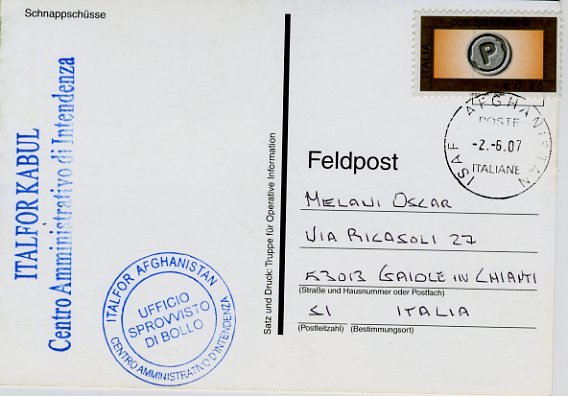 Schnappschüsse
ITALFOR KABUL
Centro Amministrativo di Intendenza
ITALFOR AFGHANISTAN
UFFICIO
SPROVVISTO
DI BOLLO
CENTRO AMMINISTRATIVO D'INTENDENZA
Satz und Druck: Truppe für Operative Information
ITALIA
P
ISAF - AFGHANISTAN
POSTE
-2.-6.07
ITALIANE
Feldpost
MELANI OSCAR
VIA RICASOLI 27
53013 GAIOLE IN CHIANTI
(Straße und Hausnummer oder Postfach)
SI ITALIA
(Postleitzahl) (Bestimmungsort)